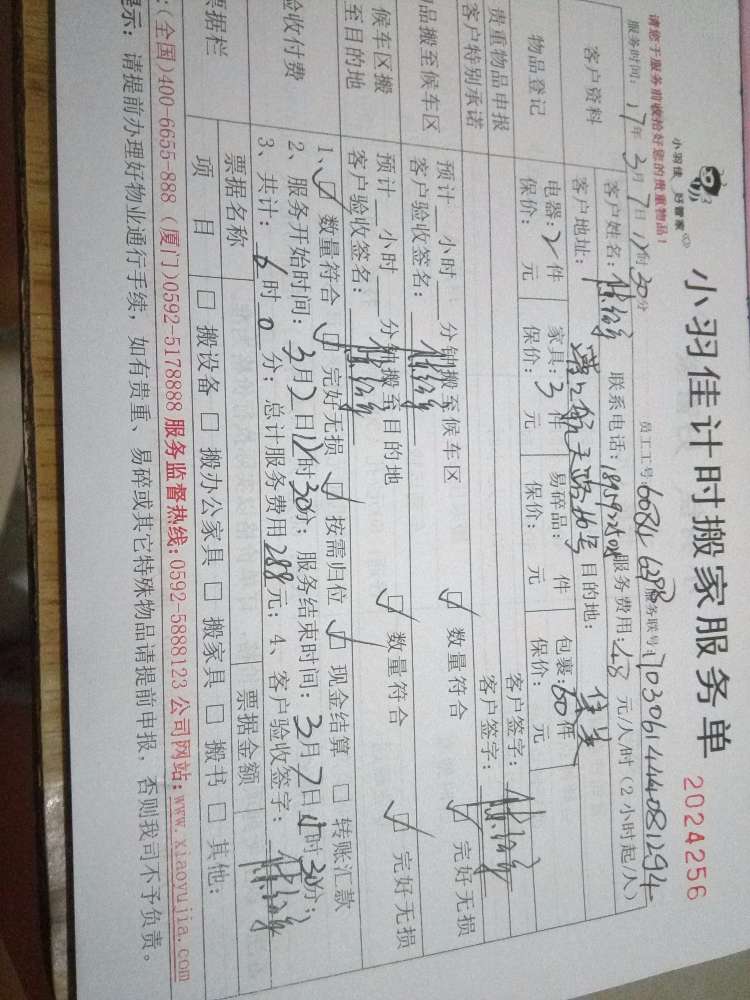 小羽佳计时搬家服务单
2024256
小羽佳 好管家
请您于服务前收恰好您的贵重物品!
员工工号:
服务联号:
服务时间: 17年3月7日12时30分
客户资料
客户姓名: 联系电话: 服务费用:48元/人/时(2小时起/人)
客户地址: 目的地:
物品登记
电器:2件 家具:3件 易碎品: 件 包裹:60件
保价: 元 保价: 元 保价: 元 保价: 元
贵重物品申报 客户签字:
客户特别承诺 客户签字:
品搬至候车区
预计 小时 分钟搬至候车区
客户验收签名: ☑数量符合 ☑完好无损
候车区搬
至目的地
预计 小时 分钟搬至目的地
客户验收签名: ☑数量符合 ☑完好无损
验收付费
1、☑数量符合 ☑完好无损 ☑按需归位 ☑现金结算 □转账汇款
2、服务开始时间:3月7日12时30分;服务结束时间:3月7日 时30分;
3、共计:6时0分;总计服务费用288元;4、客户验收签字:
票据栏
票据名称 票据金额
项 目 □搬设备 □搬办公家具 □搬家具 □搬书 □其他:
:(全国)400-6655-888 (厦门)0592-5178888 服务监督热线:0592-5888123 公司网站:www.xiaoyujia.com
示: 请提前办理好物业通行手续, 如有贵重、易碎或其它特殊物品请提前申报, 否则我司不予负责。